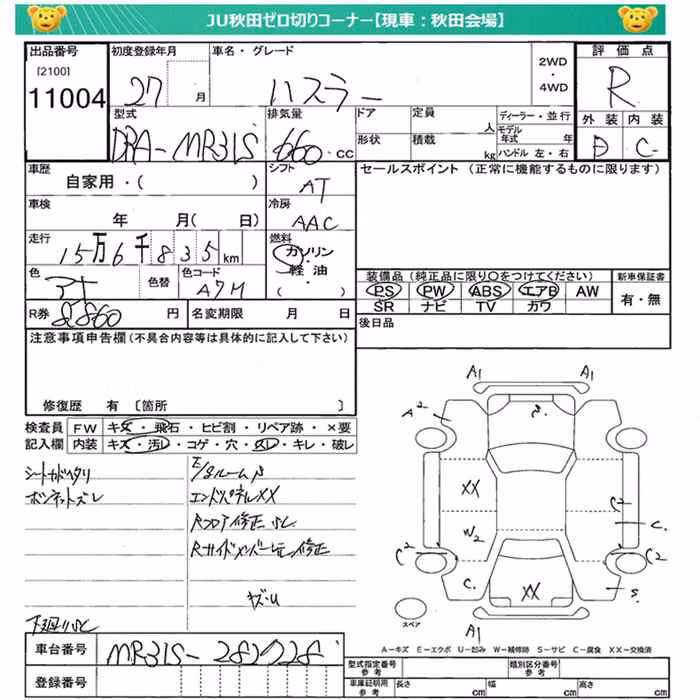 JU秋田ゼロ切りコーナー【現車：秋田会場】
出品番号 初度登録年月 車名・グレード 評価点
[2100]
11004 27 月 ハスラー 2WD ・ 4WD R
型式 排気量 ドア 定員 人 ディーラー・並行 外装 内装
DBA-MR31S 660 CC 形状 積載 kg モデル年式 年 ハンドル 左・右 D C-
車歴 シフト セールスポイント（正常に機能するものに限ります）
自家用・（ ） AT
車検 冷房
年 月（ 日） AAC
走行 燃料
15万6千835km ガソリン・軽油・（ ）
色 色替 色コード 装備品（純正品に限り○をつけてください） 新車保証書
A7M PS PW ABS エアB AW 有・無
SR ナビ TV カワ
R券 8860 円 名変期限 月 日 後日品
注意事項申告欄（不具合内容等は具体的に記入して下さい）
修復歴 有 〔箇所 〕
検査員 FW キズ・飛石・ヒビ割・リペア跡・×要
記入欄 内装 キズ・汚れ・コゲ・穴・スレ・キレ・破レ
シートカドヘタリ
ボンネットズレ
E/Gルーム
エンドパネルXX
Rフロア修正
Rサイドメンバー 修正
キズ・U
下廻りサビ
A1 A1
A2
XX
C2
W2 C.
C2 C2
C. XX S.
スペア A1
A-キズ E-エクボ U-凹み W-補修跡 S-サビ C-腐食 XX-交換済
車台番号 MR31S-282728
登録番号
型式指定番号 参考 類別区分番号 参考
車庫証明用 参考 長さ cm 幅 cm 高さ cm